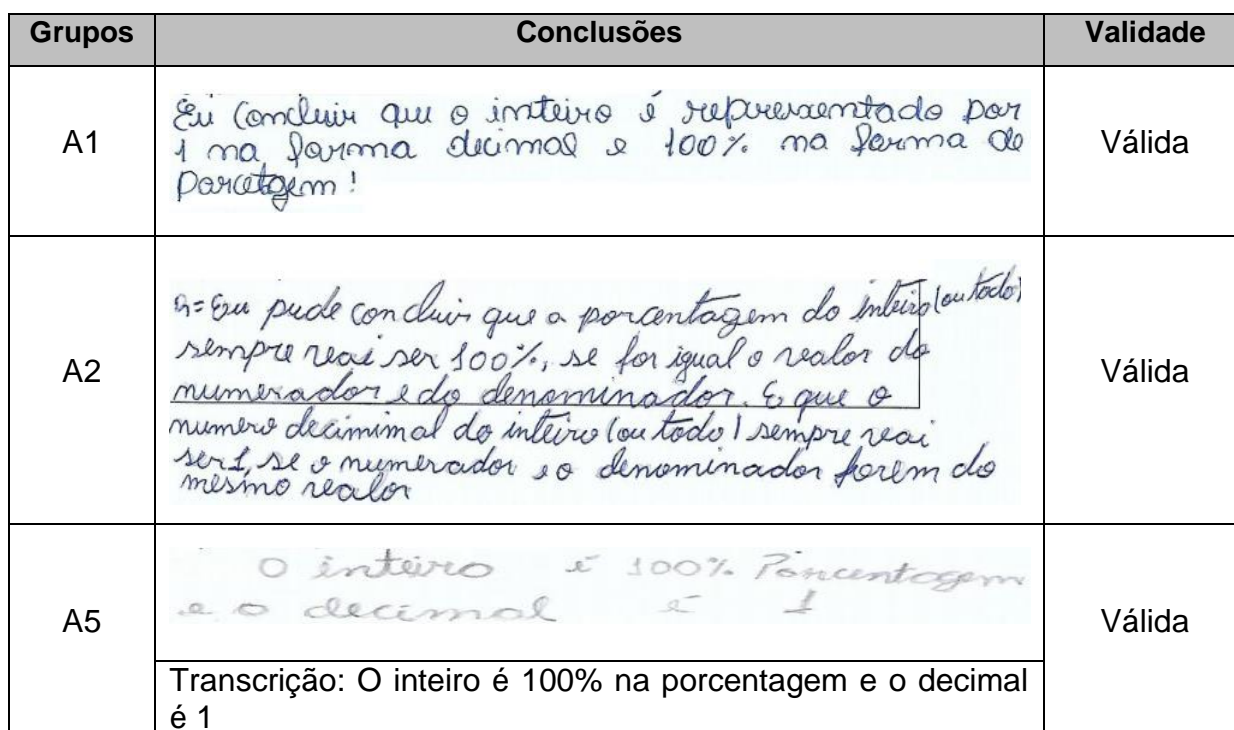 Grupos Conclusões Validade
A1
Eu Concluir que o inteiro é representado por
1 na forma decimal e 100% na forma de
Porcetagem!
Válida
A2
R= Eu pude concluir que a porcentagem do inteiro (ou todo)
sempre vai ser 100%, se for igual o valor do
numerador e do denominador. E que o
numero decimimal do inteiro (ou todo) sempre vai
ser 1, se o numerador e o denominador forem do
mesmo valor
Válida
A5
O inteiro é 100% Porcentagem
e o decimal é 1
Válida
Transcrição: O inteiro é 100% na porcentagem e o decimal
é 1